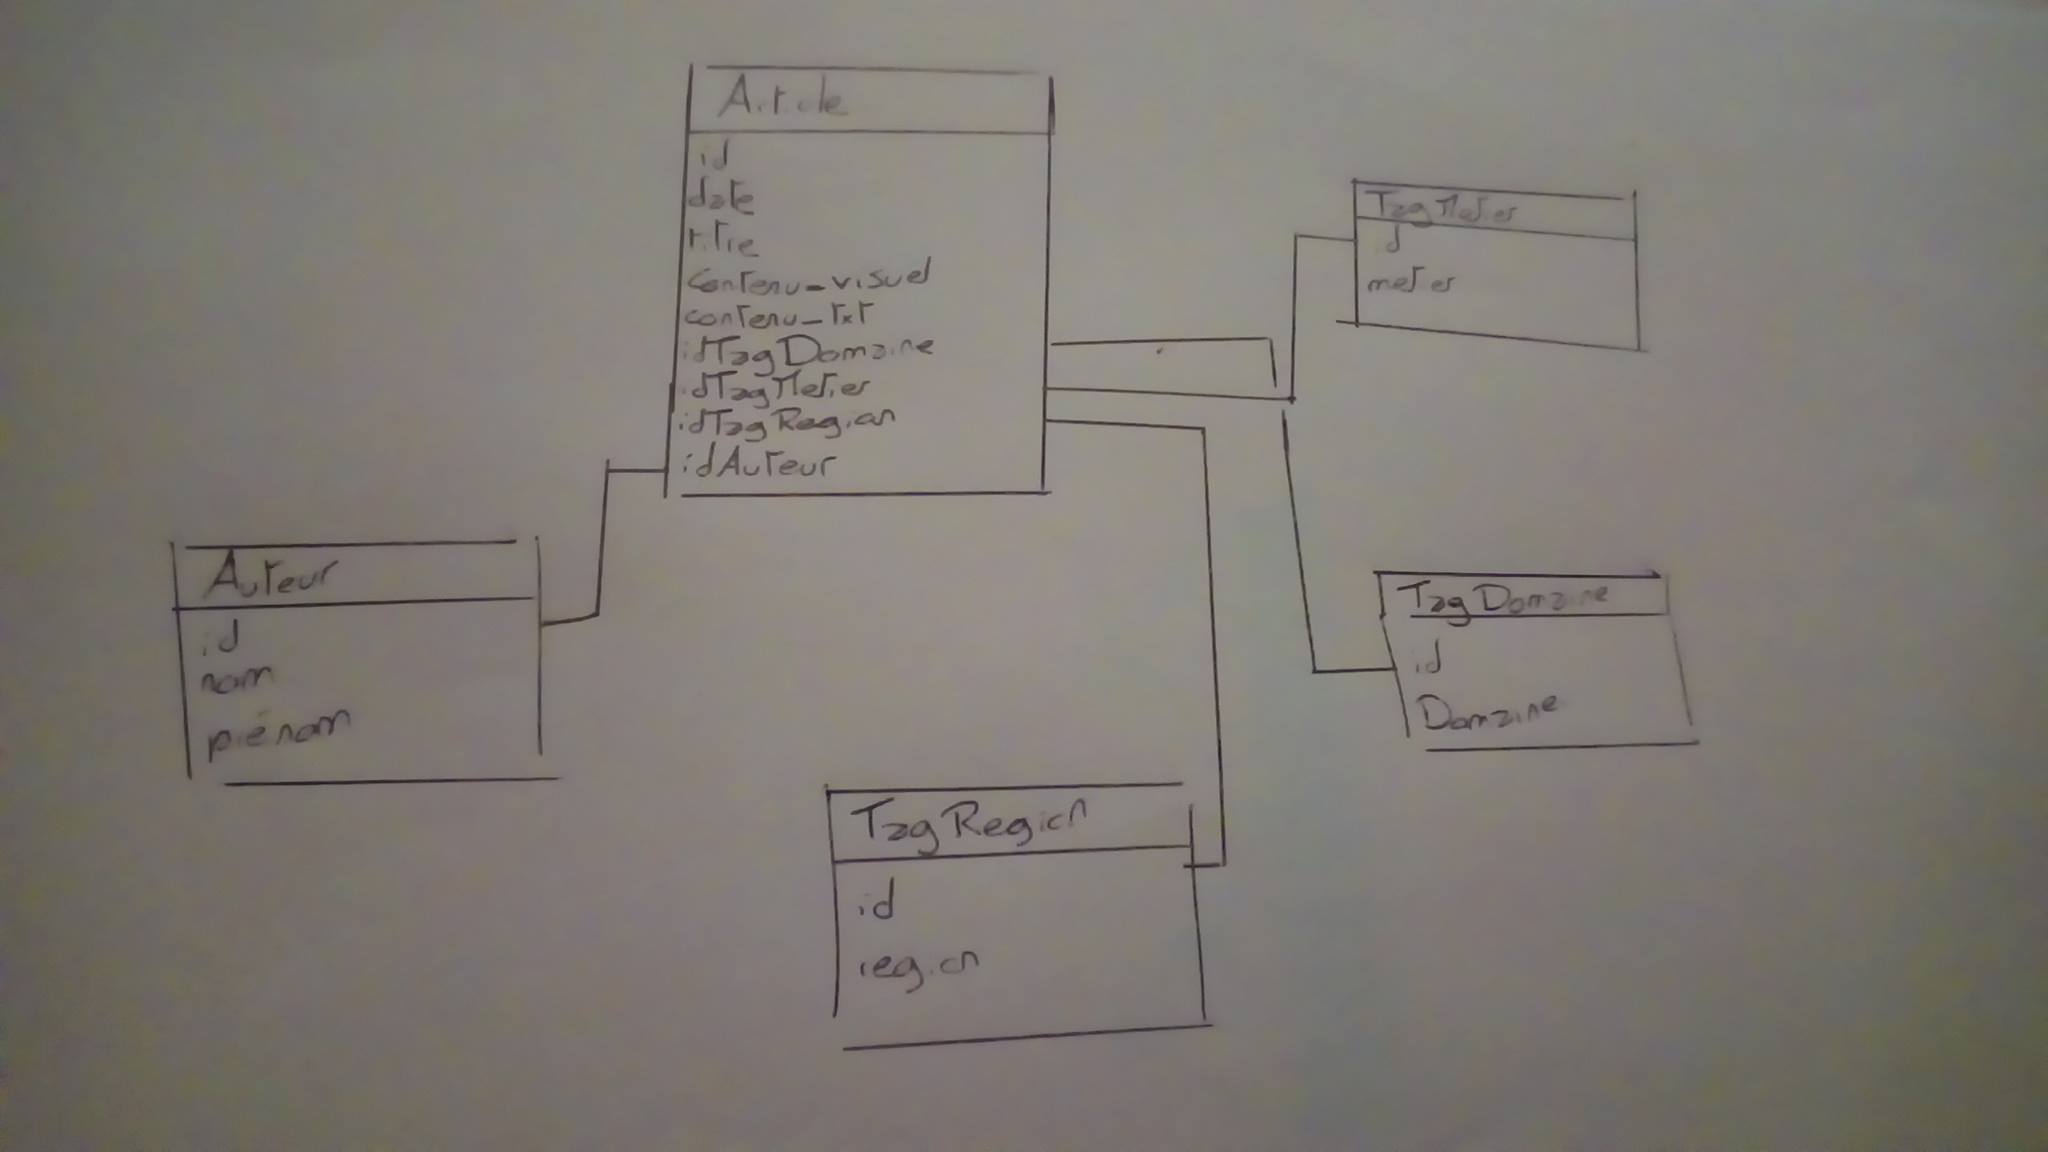 Article
id
date
titre
contenu_visuel
contenu_txt
idTagDomaine
idTagMetier
idTagRegion
idAuteur
TagMetier
id
metier
Auteur
id
nom
prénom
TagDomaine
id
Domaine
TagRegion
id
region